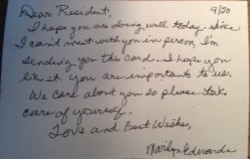 Dear Resident, 9/20
I hope you are doing well today. Since
I can't meet with you in person, I'm
sending you this card. I hope you
like it. You are important to us.
We care about you so please take
care of yourself.
Love and Best Wishes,
Marilyn Edwards